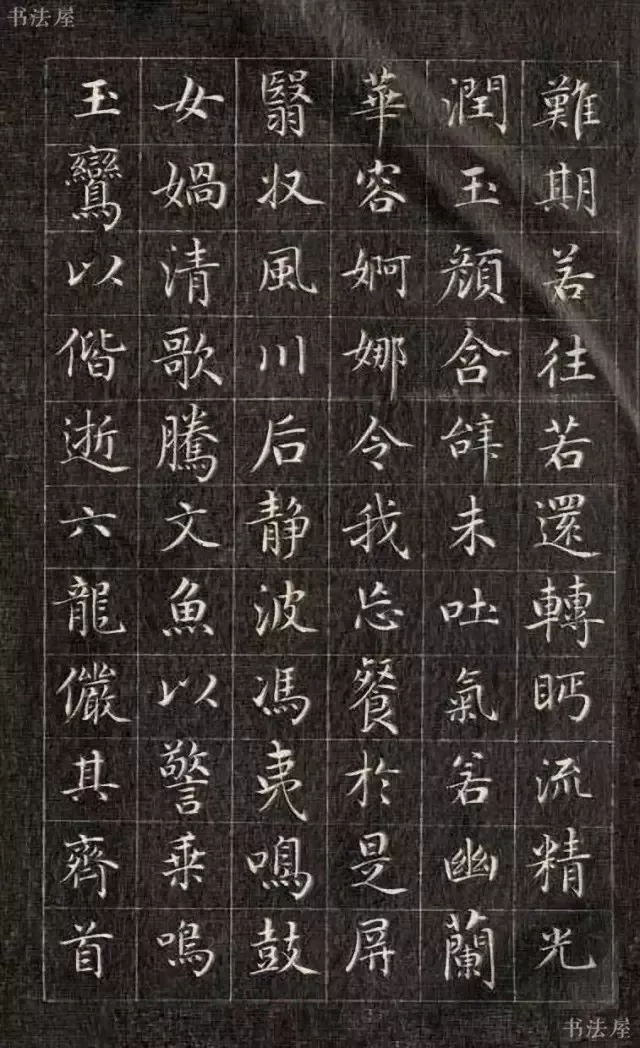 书法屋
難期若往若還轉眄流精光
潤玉顏含辭未吐氣若幽蘭
華容婀娜令我忘餐於是屏
翳收風川后靜波馮夷鳴鼓
女媧清歌騰文魚以警乘鳴
玉鸞以偕逝六龍儼其齊首
书法屋